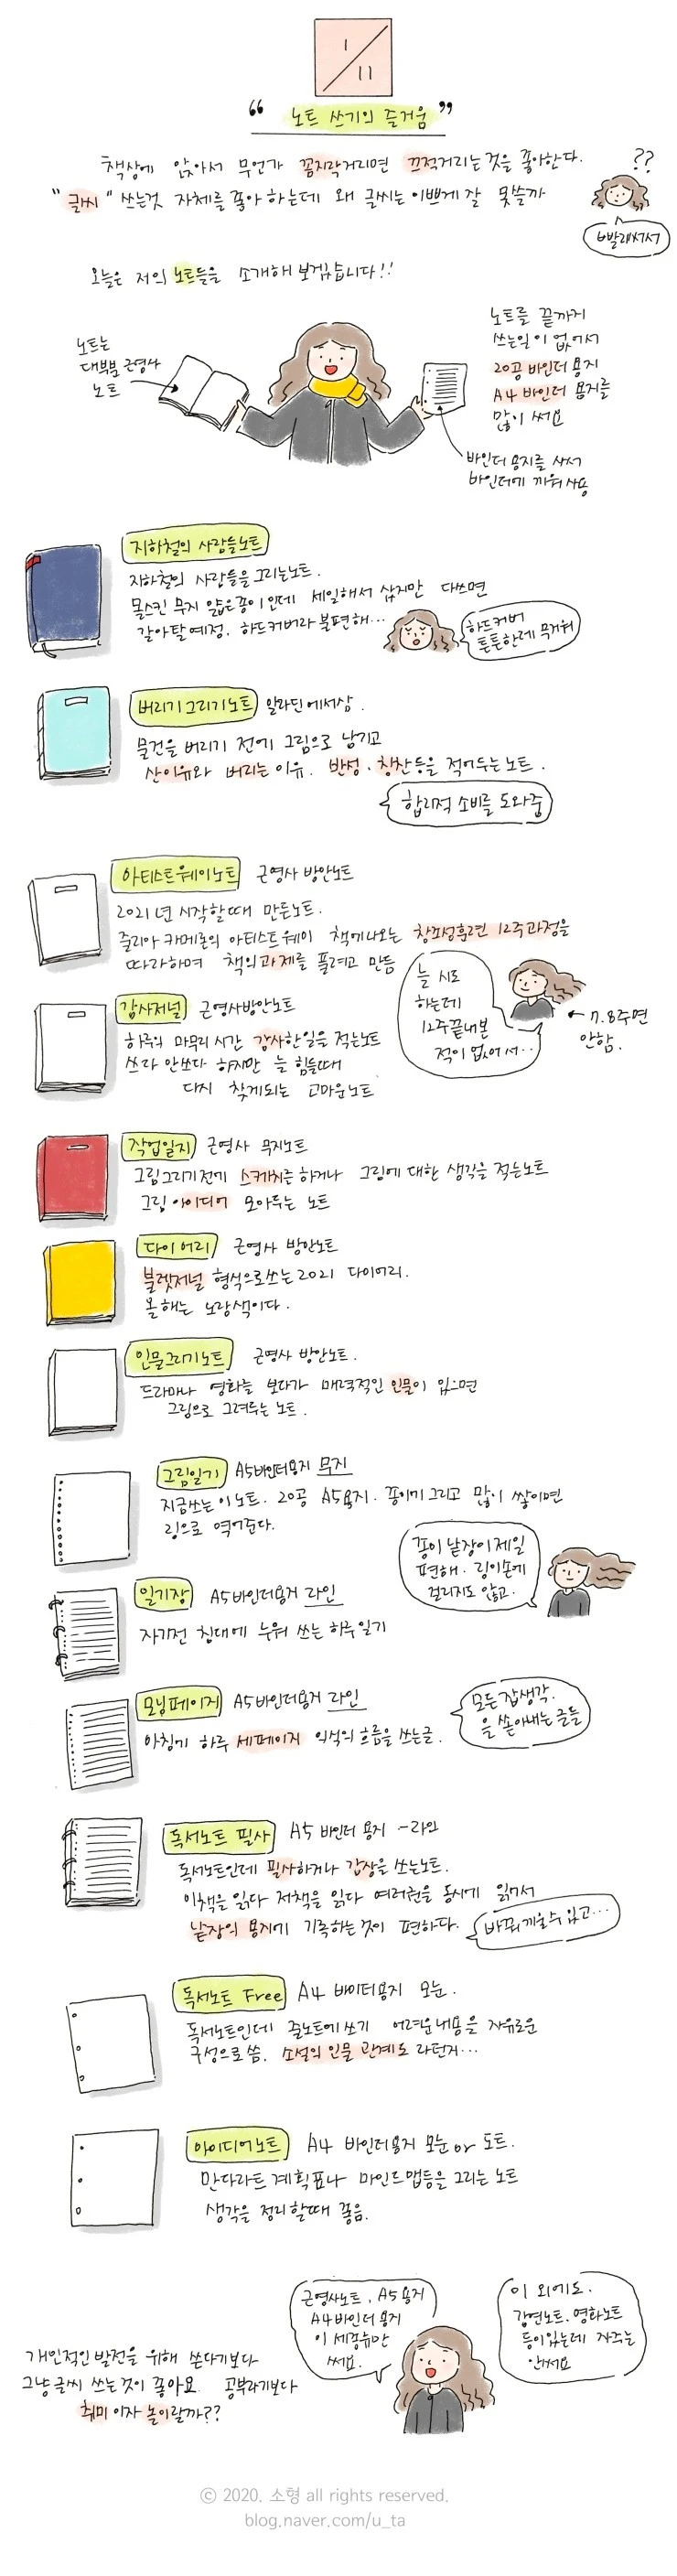 1/11
“ 노트 쓰기의 즐거움 ”
책상에 앉아서 무언가 꼼지락거리면 끄적거리는것을 좋아한다.
"글씨" 쓰는것 자체를 좋아 하는데 왜 글씨는 이쁘게 잘 못쓸까
??
삐발래서서
오늘은 저의 노트들을 소개해 보겠습니다!!
노트는
대부분 근영사
노트
노트를 끝까지
쓰는일이 없어서
20공 바인더 용지
A4 바인더 용지를
많이 써요
바인더 용지를 사서
바인더에 끼워 사용
지하철의 사람들노트
지하철의 사람들을 그리는노트.
몰스킨 무지 얇은종이인데 세일해서 샀지만 다쓰면
갈아탈예정. 하드커버라 불편해...
하드커버
튼튼한데 무거워
버리기 그리기노트 알라딘에서삼.
물건을 버리기 전에 그림으로 남기고
산이유와 버리는 이유. 반성. 칭찬등을 적어두는 노트.
합리적 소비를 도와줌
아티스트웨이노트 근영사 방안노트
2021년 시작할때 만든노트.
줄리아 카메론의 아티스트웨이 책에나오는 창조성훈련 12주과정을
따라하며 책의과제를 풀려고 만듬
늘 시도
하는데
12주끝내본
적이 없어서..
7.8주면
안함.
감사저널 근영사방안노트
하루의 마무리 시간 감사한일을 적는노트
쓰다 안쓰다 하지만 늘 힘들때
다시 찾게되는 고마운노트
작업일지 근영사 무지노트
그림그리기전에 스케치를 하거나 그림에 대한 생각을 적는노트
그림 아이디어 모아두는 노트
다이어리 근영사 방안노트
불렛저널 형식으로쓰는 2021 다이어리.
올해는 노랑색이다.
인물그리기노트 근영사 방안노트.
드라마나 영화를 보다가 매력적인 인물이 있으면
그림으로 그려두는 노트.
그림일기 A5바인더용지 무지
지금쓰는 이노트. 20공 A5용지. 종이에 그리고 많이 쌓이면
링으로 엮어준다.
종이 낱장이 제일
편해. 링이손에
걸리지도 않고.
일기장 A5바인더용지 라인
자기전 침대에 누워 쓰는 하루일기
모닝페이지 A5바인더용지 라인
아침에 하루 세페이지 의식의 흐름을 쓰는글.
모든 잡생각.
을 쏟아내는 글들
독서노트 필사 A5 바인더 용지 -라인
독서노트인데 필사하거나 감상을 쓰는노트.
이책을 읽다 저책을 읽다 여러권을 동시에 읽어서
낱장의 용지에 기록하는것이 편하다.
바꿔끼울수 있고...
독서노트 Free A4 바인더용지 모눈.
독서노트인데 줄노트에쓰기 어려운내용을 자유로운
구성으로 씀. 소설의 인물 관계도 라던지...
아이디어노트 A4 바인더용지 모눈 or 도트.
만다라트 계획표나 마인드맵등을 그리는 노트
생각을 정리할때 좋음.
근영사노트, A5용지
A4바인더 용지
이 세종류만
써요.
이 외에도.
강연노트. 영화노트
등이있는데 자주는
안써요
개인적인 발전을 위해 쓴다기보다
그냥 글씨 쓰는것이 좋아요. 공부라기보다
취미 이자 놀이랄까??
© 2020. 소형 all rights reserved.
blog.naver.com/u_ta